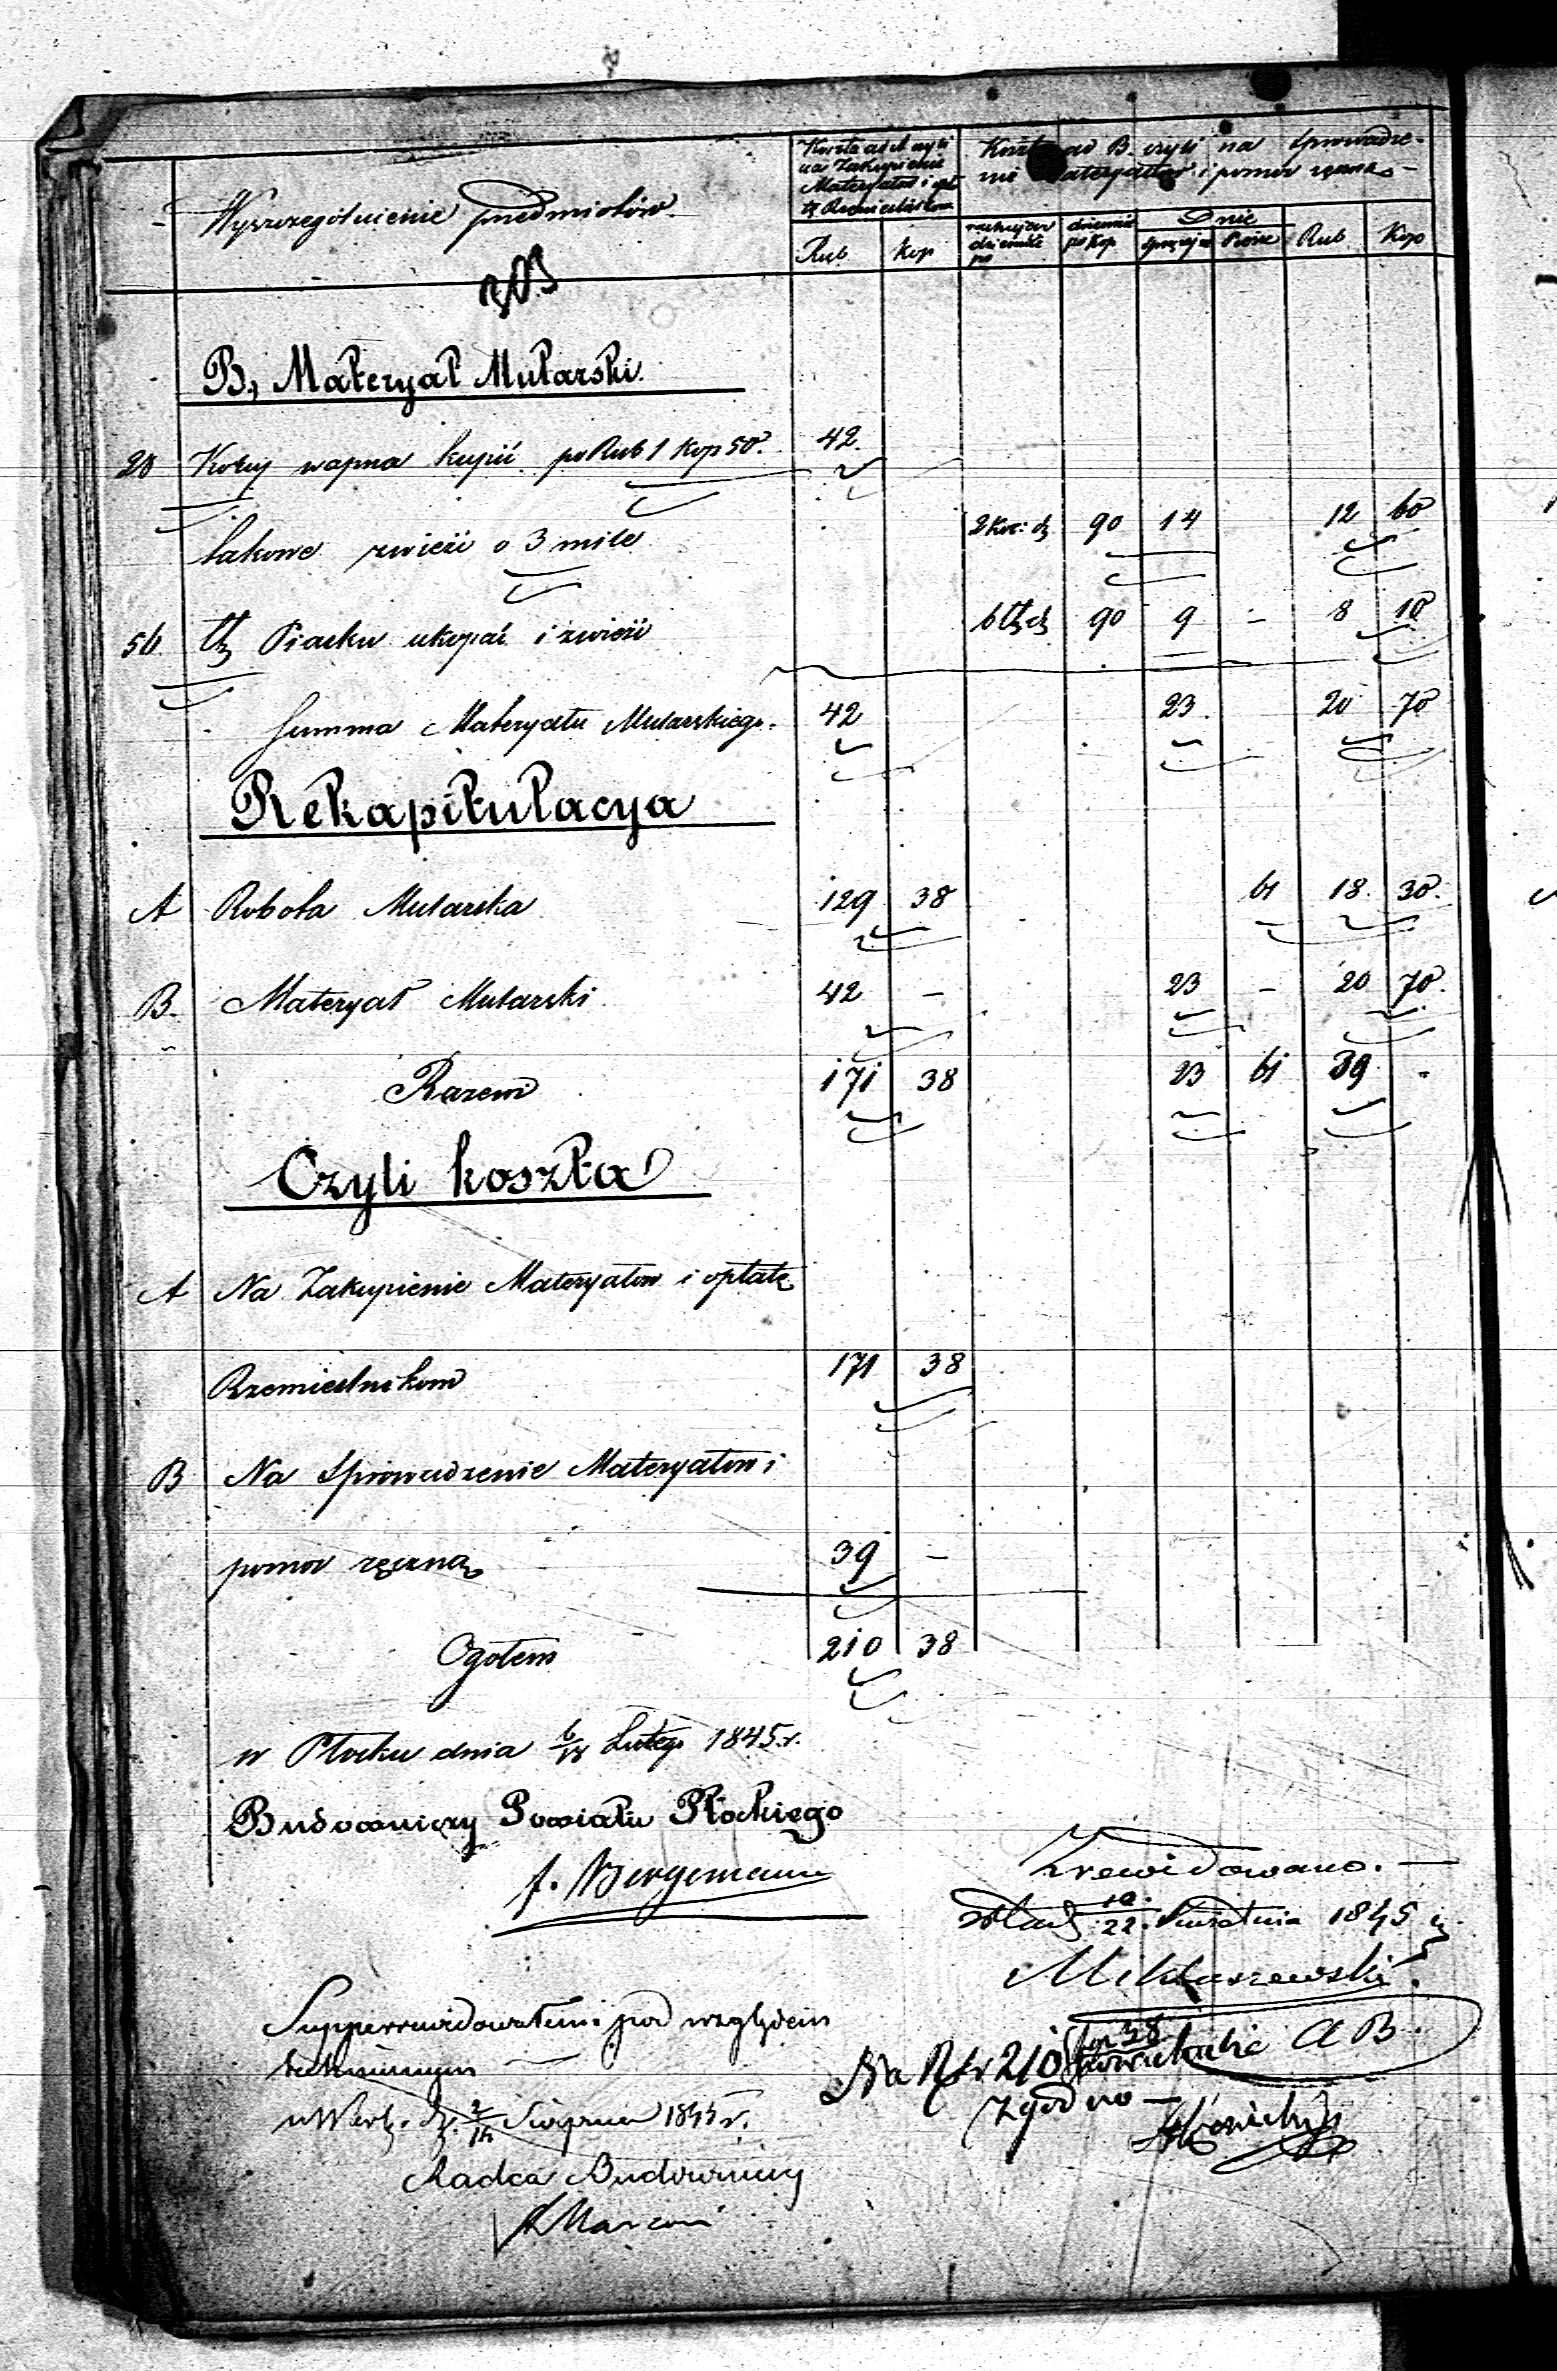 Wyszczególnienie przedmiotów.
Koszta ad A czyli
na Zakupienie
Materyałów i opł
tę Rzemieślnikom
Koszt ad B. czyli na sprowadze-
nie Materyałów i pomoc ręczną
Rub Kop
dziennie
po
dziennie
po Kop
Dnie
sprzężaj Piesze
Rub Kop
B, Materyał Mularski.
28 Korcy wapna kupić po Rub 1 Kop 50. 42.
takowe zwieźć o 3 mile 2 Kor: dz 90 14 12 60
56 Piasku ukopać i zwieźć 90 9 - 8 10
Summa Materyału Mularskiego. 42 23. 20 70
Rekapitulacya
A Robota Mularska 129 38 61 18. 30.
B. Materyał Mularski 42 - 23 - 20 70.
Razem 171 38 23 61 39 -
Czyli koszta
A Na Zakupienie Materyałów i opłatę
Rzemieślnikom 171 38
B Na Sprowadzenie Materyałów i
pomoc ręczną 39 -
Ogółem 210 38
w Płocku dnia 6/18 Lutego 1845 r.
Budowniczy Powiatu Płockiego
f. Bergemann
Zrewidowano. —
10/22 Kwietnia 1845 r.
Mikłaszewski.
Superrewidowałem pod względem
technicznym —
Sierpnia 1845 r.
Radca Budowniczy
Marconi
Na Rsr 210 kop 38
Zgodno —